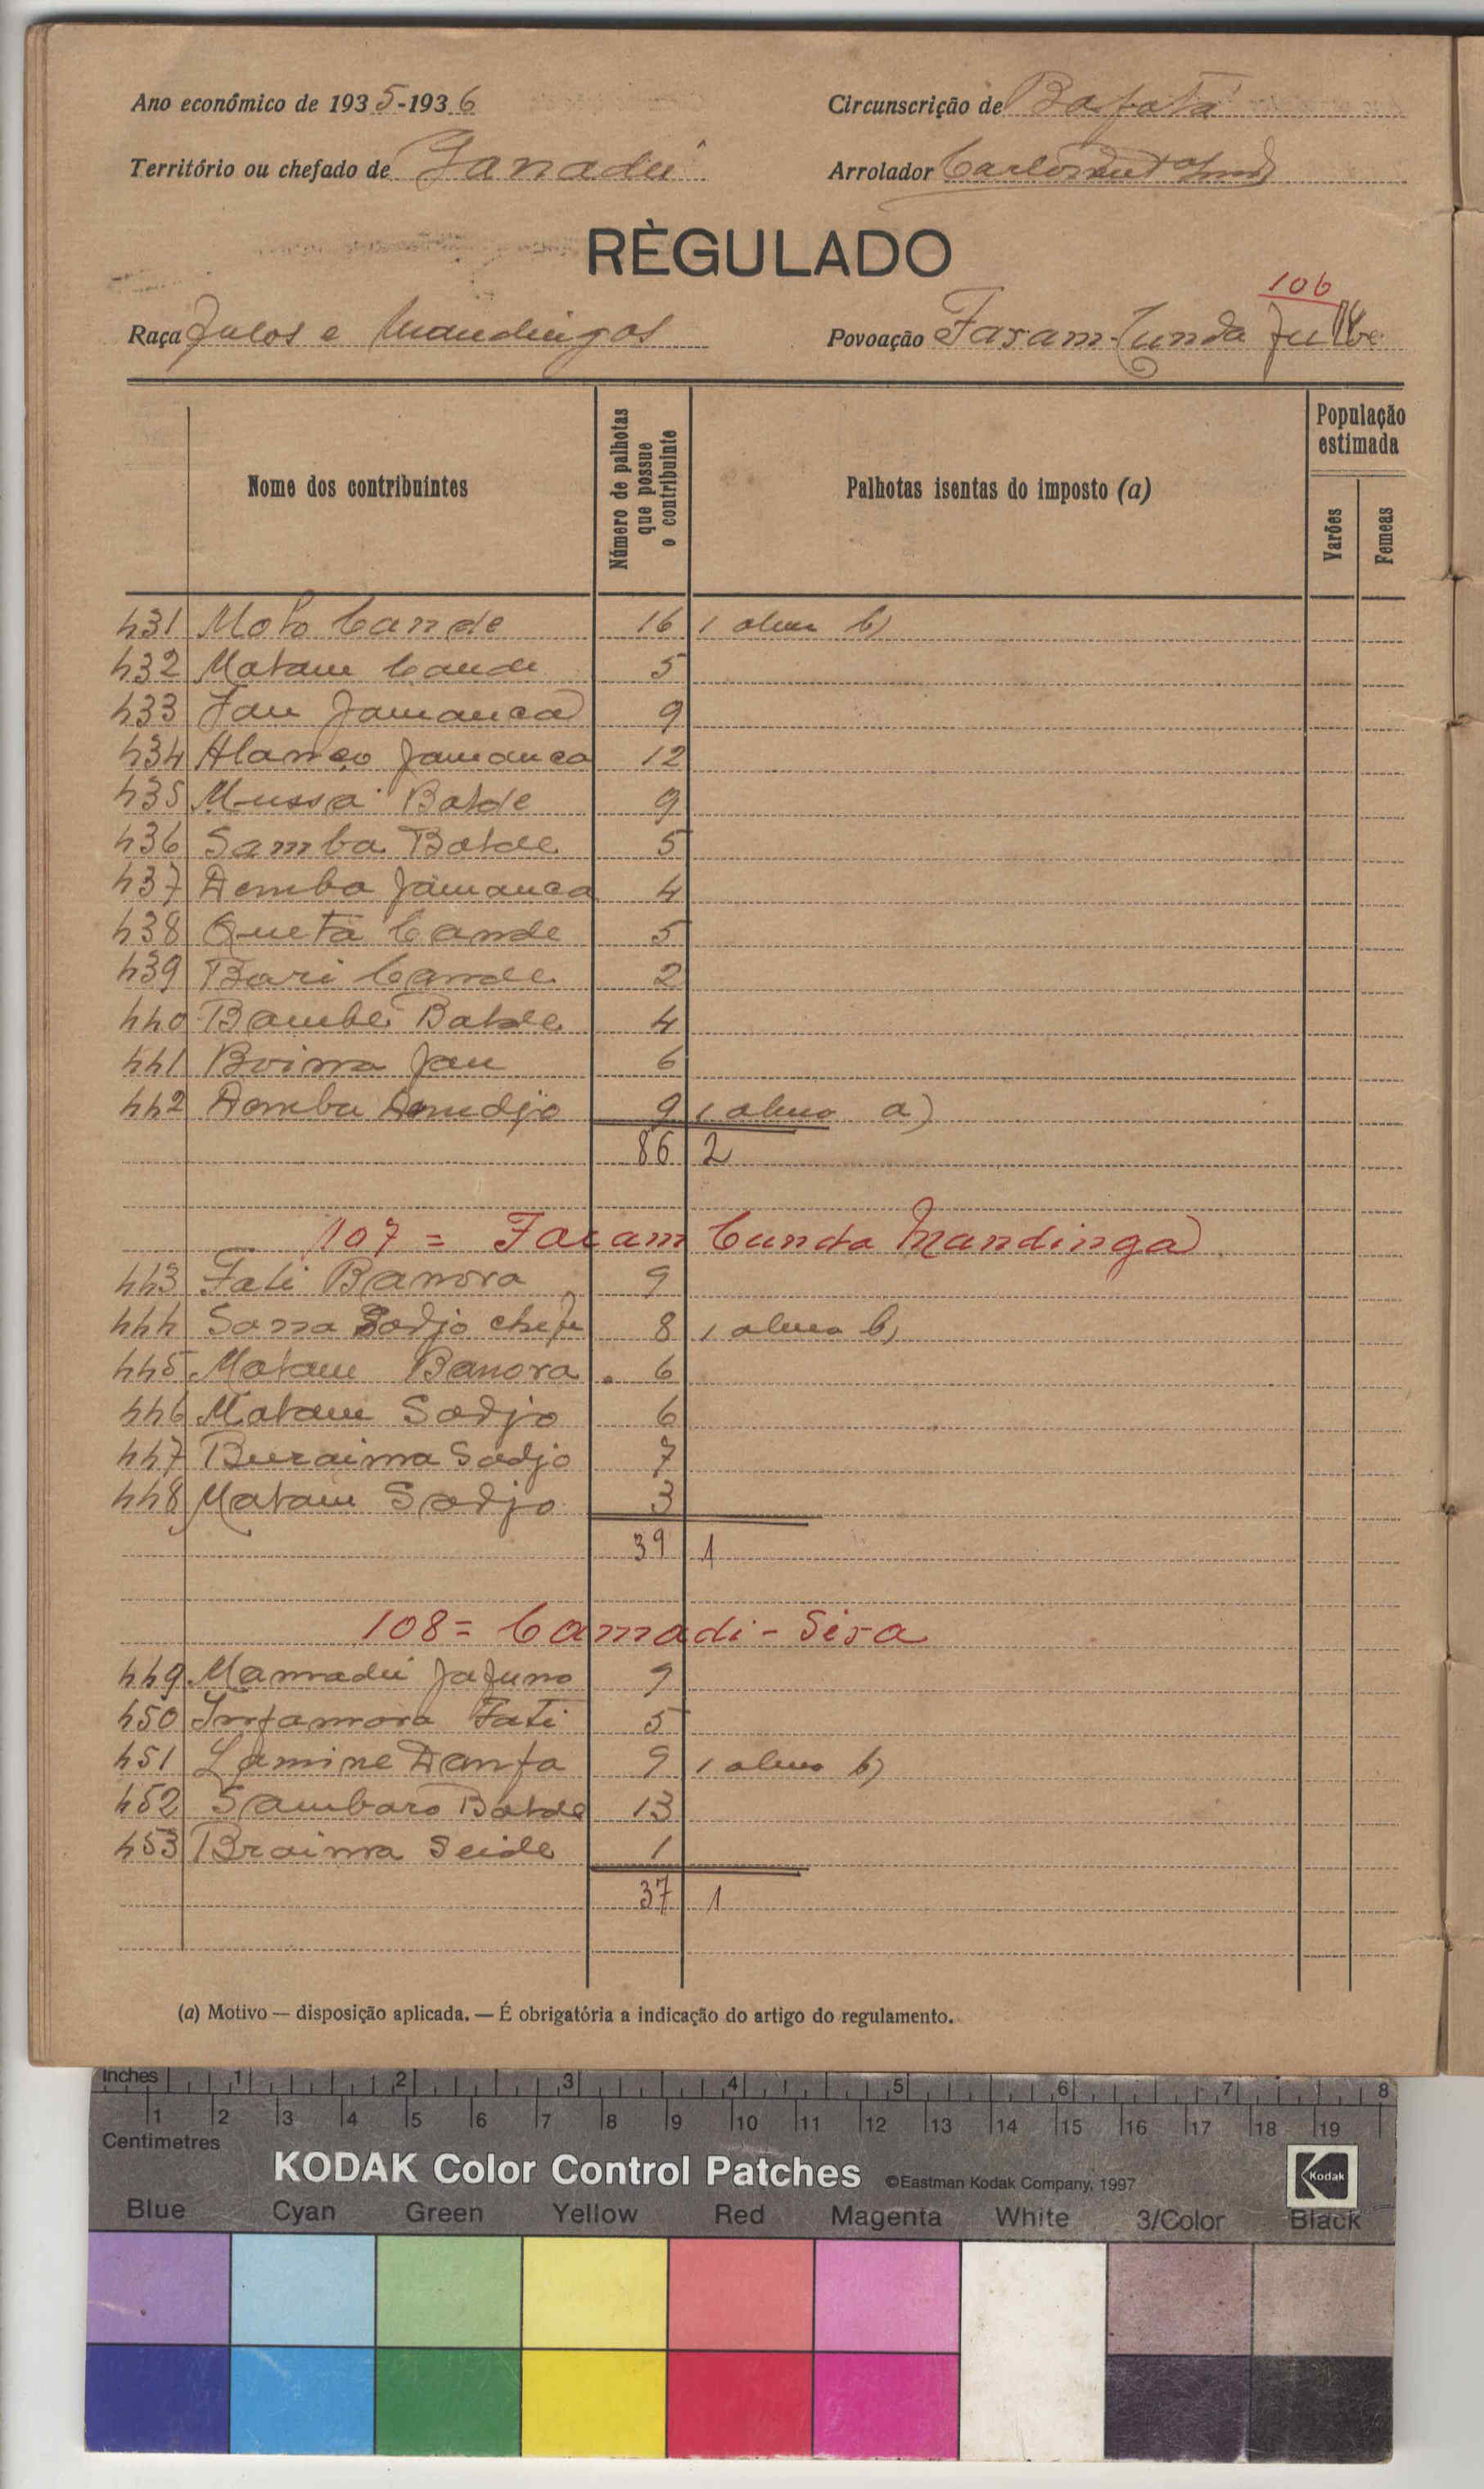 Ano económico de 1935-1936 Circunscrição de Bafatá
Território ou chefado de Ganadú Arrolador
RÈGULADO
106
Raça Fulos e Mandingos Povoação Faram-Cunda Fulbe
Nome dos contribuintes Número de palhotas que possue o contribuinte Palhotas isentas do imposto (a) População estimada
Varões Femeas
431 Molo Cande 16 1 b)
432 Matam Cande 5
433 Jau Jamanca 9
434 Alanso Jamanca 12
435 Mussa Balde 9
436 Samba Balde 5
437 Demba Jamanca 4
438 Queta Cande 5
439 Bari Cande 2
440 Bambe Balde 4
441 Boima Jau 6
442 Demba 9 1 a)
86 2
107 = Faram Cunda Mandinga
443 Fati Banora 9
444 Sanna Sadjo chefe 8 1 b)
445 Matam Banora 6
446 Matam Sadjo 6
447 Buraima Sadjo 7
448 Matam Sadjo 3
39 1
108 = Camadi-Sira
449 Mamadú Jafuno 9
450 Infamora Fati 5
451 Lamine Danfa 9 1 b)
452 Sambaro Balde 13
453 Braima Seide 1
37 1
(a) Motivo — disposição aplicada. — É obrigatória a indicação do artigo do regulamento.
Inches 1 2 3 4 5 6 7 8
1 2 3 4 5 6 7 8 9 10 11 12 13 14 15 16 17 18 19
Centimetres
KODAK Color Control Patches ©Eastman Kodak Company, 1997 Kodak
Blue Cyan Green Yellow Red Magenta White 3/Color Black